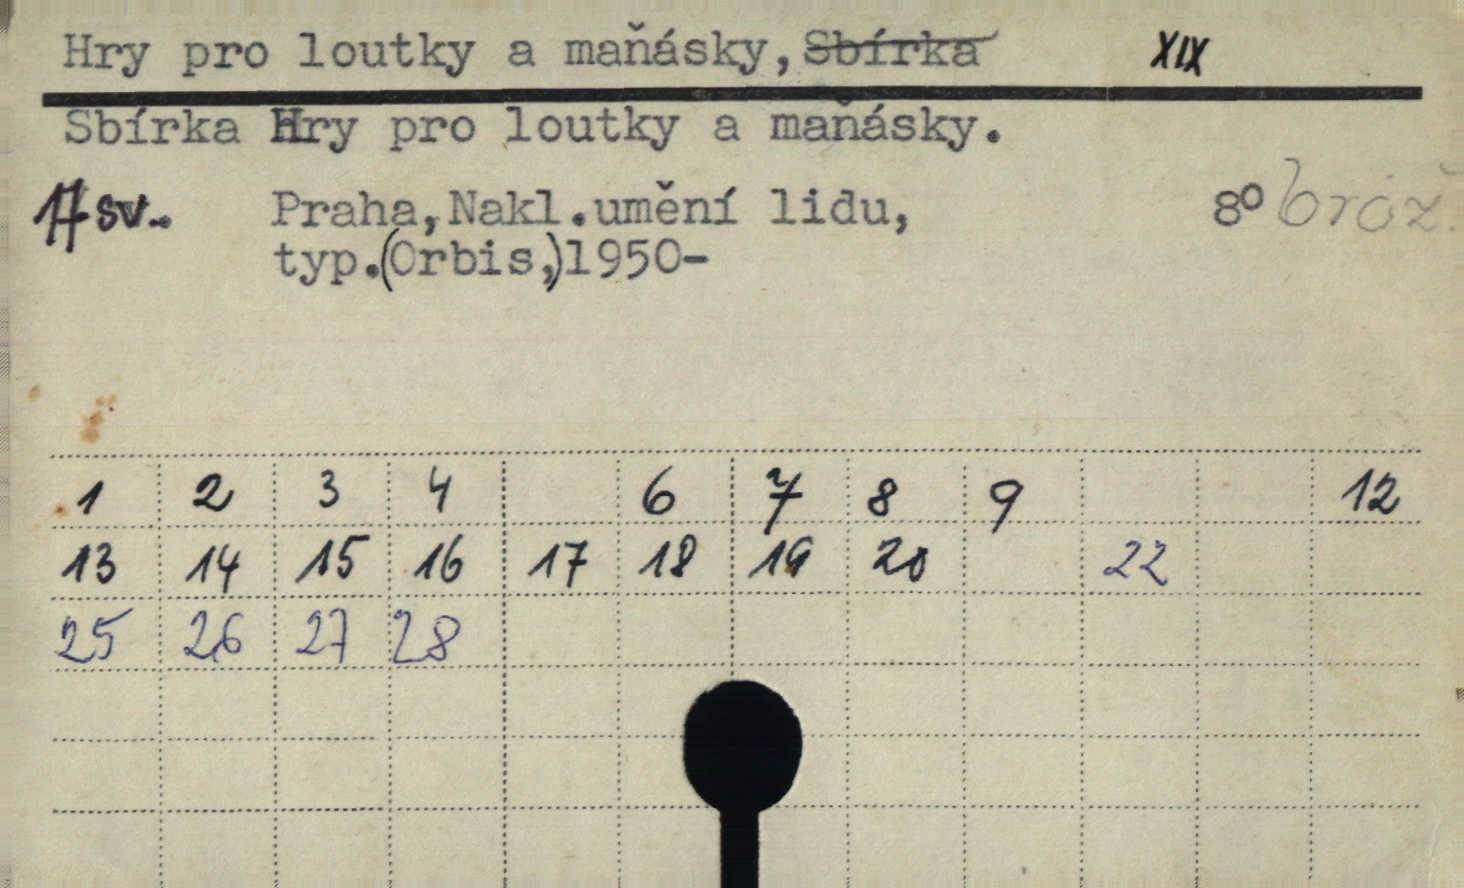 Hry pro loutky a maňásky, Sbírka XIX
Sbírka Hry pro loutky a maňásky.
17 sv. Praha, Nakl.umění lidu, 8° brož.
typ.(Orbis,)1950-
1 2 3 4 6 7 8 9 12
13 14 15 16 17 18 19 20 22
25 26 27 28